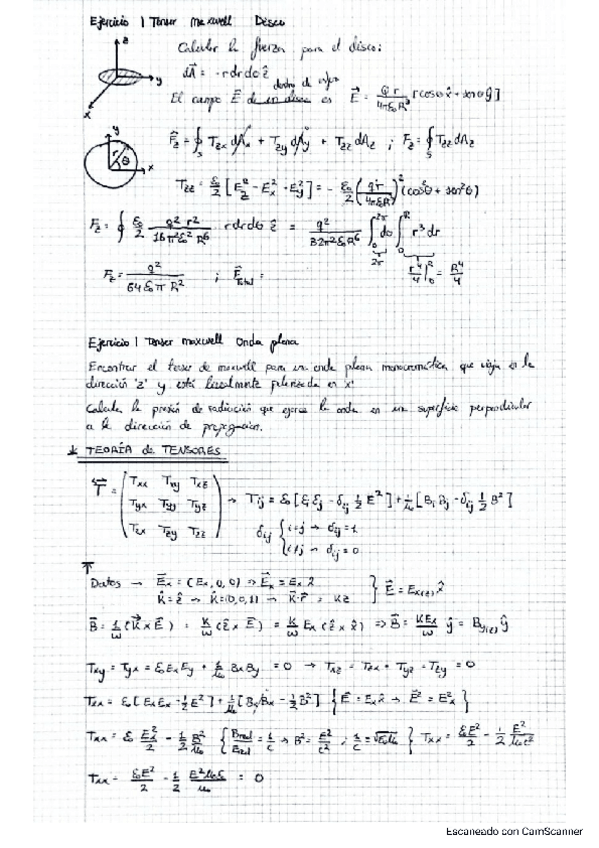 Ejercicio 1 Tensor Maxwell Disco
z
y
x
Calcular la fuerza para el disco:
dA⃗ = -r dr dθ ẑ
dentro de esfera
El campo E⃗ de un disco es E⃗ = q r / 4πε₀R³ [cosθ x̂ + senθ ŷ]
y
r
θ
x
F⃗z = ∮s Tzx dAx + Tzy dAy + Tzz dAz ; Fz = ∮s Tzz dAz
Tzz = ε₀/2 [Ez² - Ex² - Ey²] = - ε₀/2 (qr/4πε₀R³)² (cos²θ + sen²θ)
Fz = ∮ ε₀/2 q² r²/16π²ε₀² R⁶ r dr dθ ẑ = q²/32π²ε₀R⁶ ∫₀^2π dθ ∫₀^R r³ dr
2π r⁴/4 |₀^R = R⁴/4
Fz = q²/64 ε₀ π R² ; F⃗Total =
Ejercicio 1 Tensor maxwell Onda plana
Encontrar el tensor de maxwell para una onda plana monocromática que viaja en la
dirección 'z' y está linealmente polarizada en 'x'
Calcula la presión de radiación que ejerce la onda en una superficie perpendicular
a la dirección de propagación.
↓ TEORÍA de TENSORES
T⃡ = (Txx Txy Txz
Tyx Tyy Tyz
Tzx Tzy Tzz) → Tij = ε₀ [Ei Ej - δij ½ E²] + 1/μ₀ [Bi Bj - δij ½ B²]
δij { i=j → δij = 1
i≠j → δij = 0
↑
Datos → E⃗x = (Ex, 0, 0) ⇒ E⃗x = Ex x̂
K̂ = ẑ → K̂ = (0,0,1) → K⃗·r⃗ = Kz } E⃗ = Ex(z) x̂
B⃗ = 1/ω (K⃗ x E⃗) = K/ω (ẑ x E⃗) = K/ω Ex (ẑ x x̂) ⇒ B⃗ = KEx/ω ŷ = By(z) ŷ
Txy = Tyx = ε₀ Ex Ey + 1/μ₀ Bx By = 0 → Txz = Tzx = Tyz = Tzy = 0
Txx = ε₀ [Ex Ex - ½ E²] + 1/μ₀ [Bx Bx - ½ B²] { E⃗ = Ex x̂ → E² = Ex² }
Txx = ε₀ Ex²/2 - ½ B²/μ₀ { = 1/c → B² = E²/c² ; 1/c = √ε₀μ₀ } Txx = εE²/2 - 1/2 E²/μ₀c²
Txx = ε₀E²/2 - 1/2 E²μ₀ε₀/μ₀ = 0
Escaneado con CamScanner